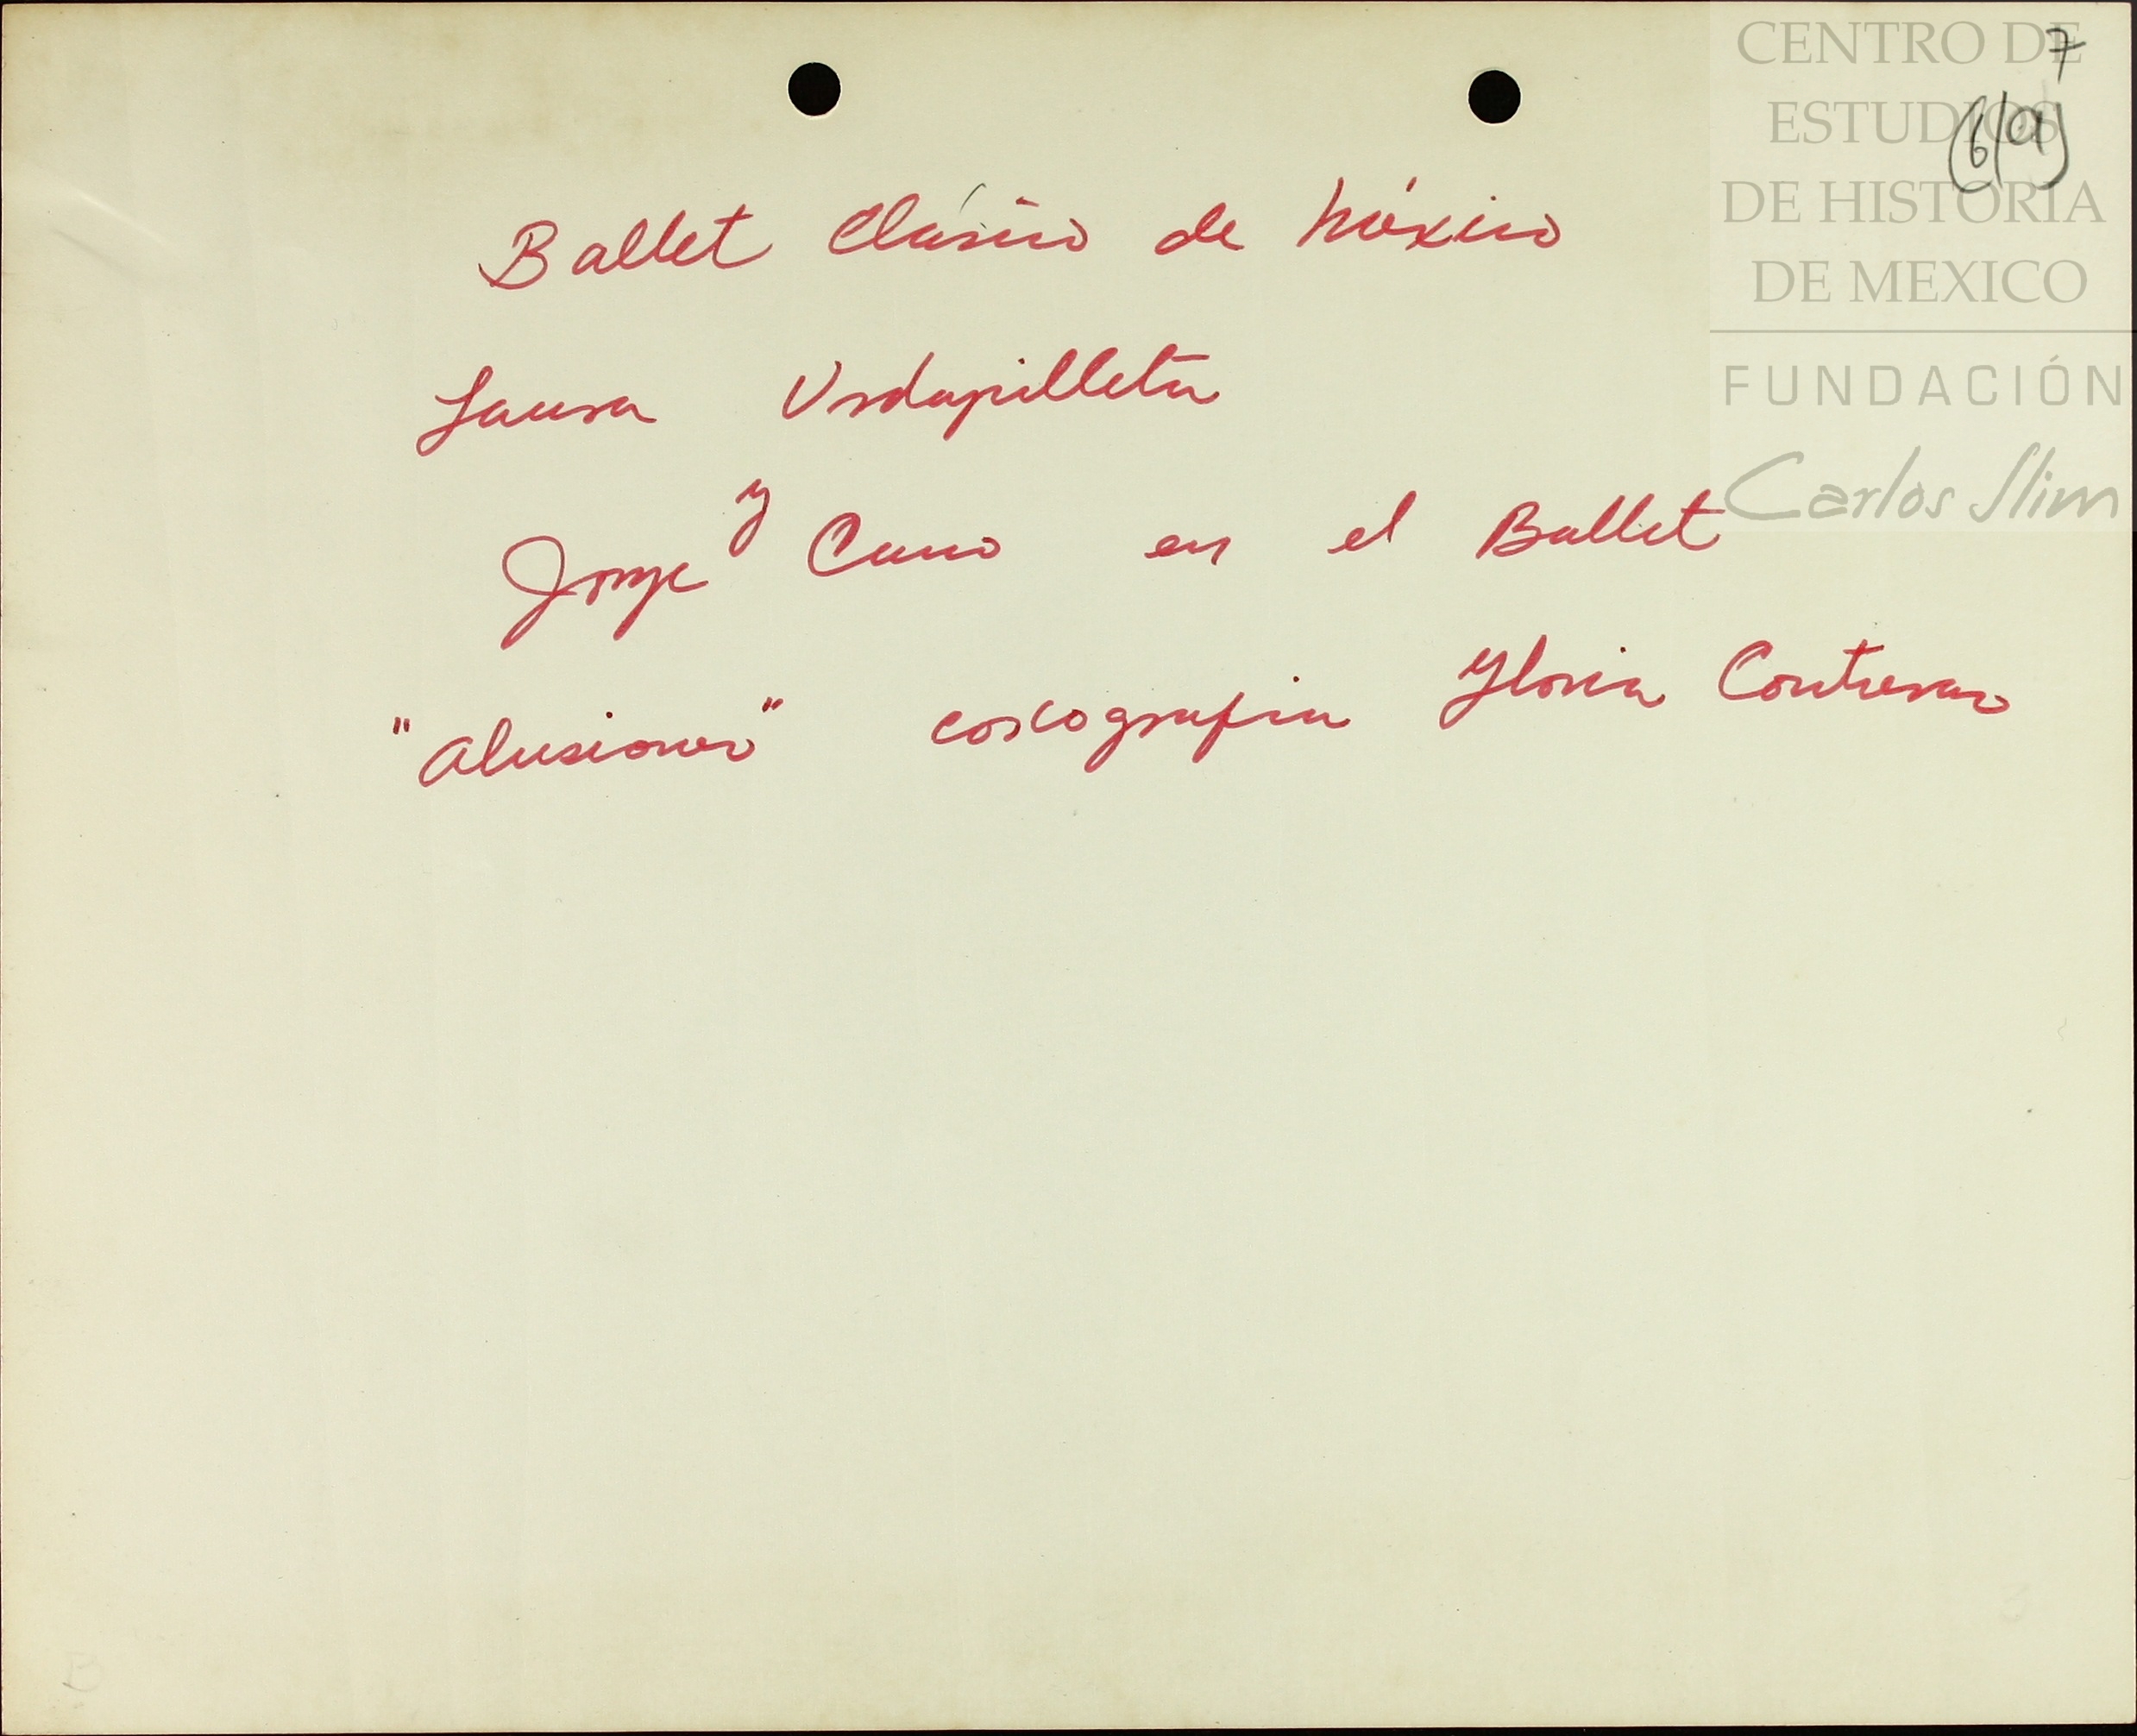 7
(6/9)
CENTRO DE
ESTUDIOS
DE HISTORIA
DE MEXICO
FUNDACIÓN
Carlos Slim
Ballet Clásico de México
Laura Urdapilleta
y
Jorge Cano en el Ballet
"Alusiones" coreografia Gloria Contreras